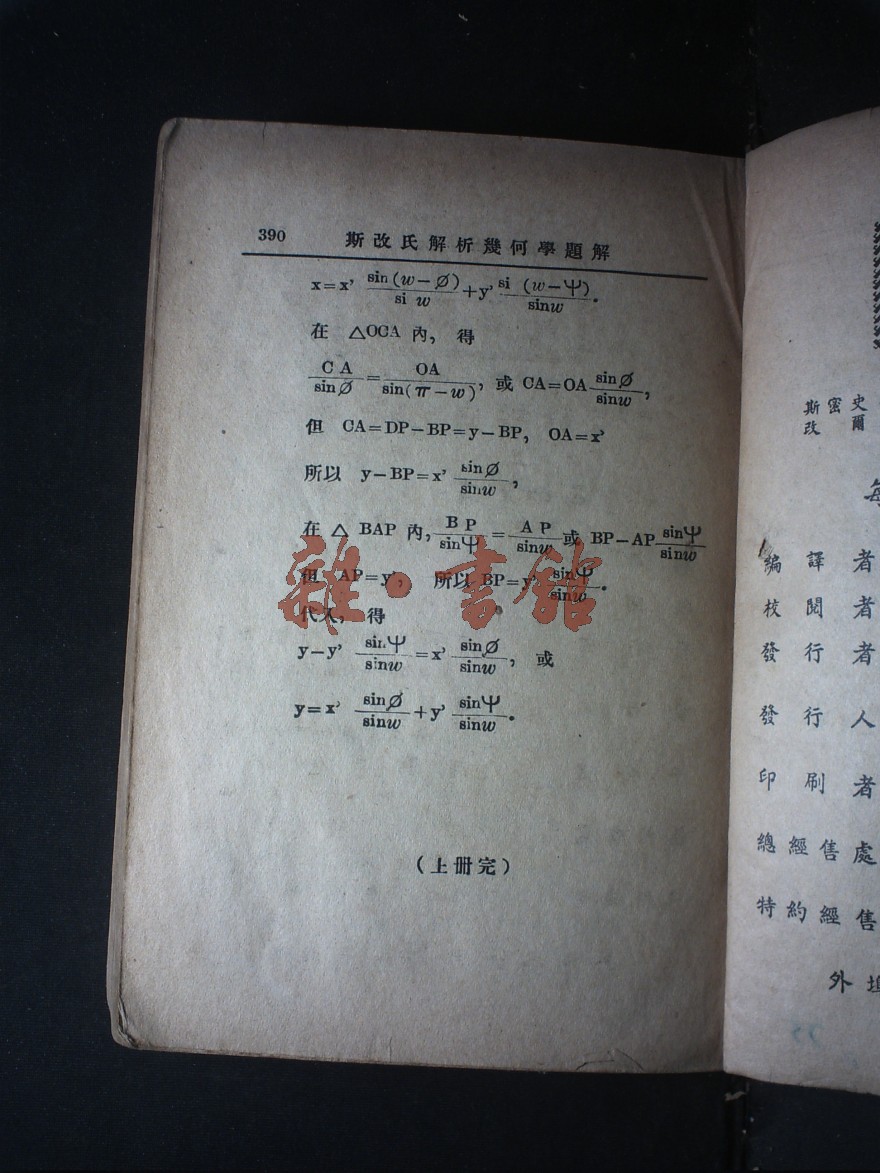 390 斯改氏解析幾何學題解
x=x’ sin(w−Ø)/si w +y’ si (w−Ψ)/sinw.
在 △OCA 內, 得
C A/sinØ = OA/sin(π−w), 或 CA=OA sinØ/sinw,
但 CA=DP−BP=y−BP, OA=x’
所以 y−BP=x’ sinØ/sinw,
在 △ BAP 內, B P/sinΨ = A P/sinw 或 BP−AP sinΨ/sinw
但 AP=y’, 所以 BP=y’ sinΨ/sinw.
代入, 得
y−y’ sinΨ/sinw =x’ sinØ/sinw, 或
y=x’ sinØ/sinw +y’ sinΨ/sinw.
(上冊完)
雜·書館
斯密史
改爾
編譯者
校閱者
發行者
發行人
印刷者
總經售處
特約經售
外埠